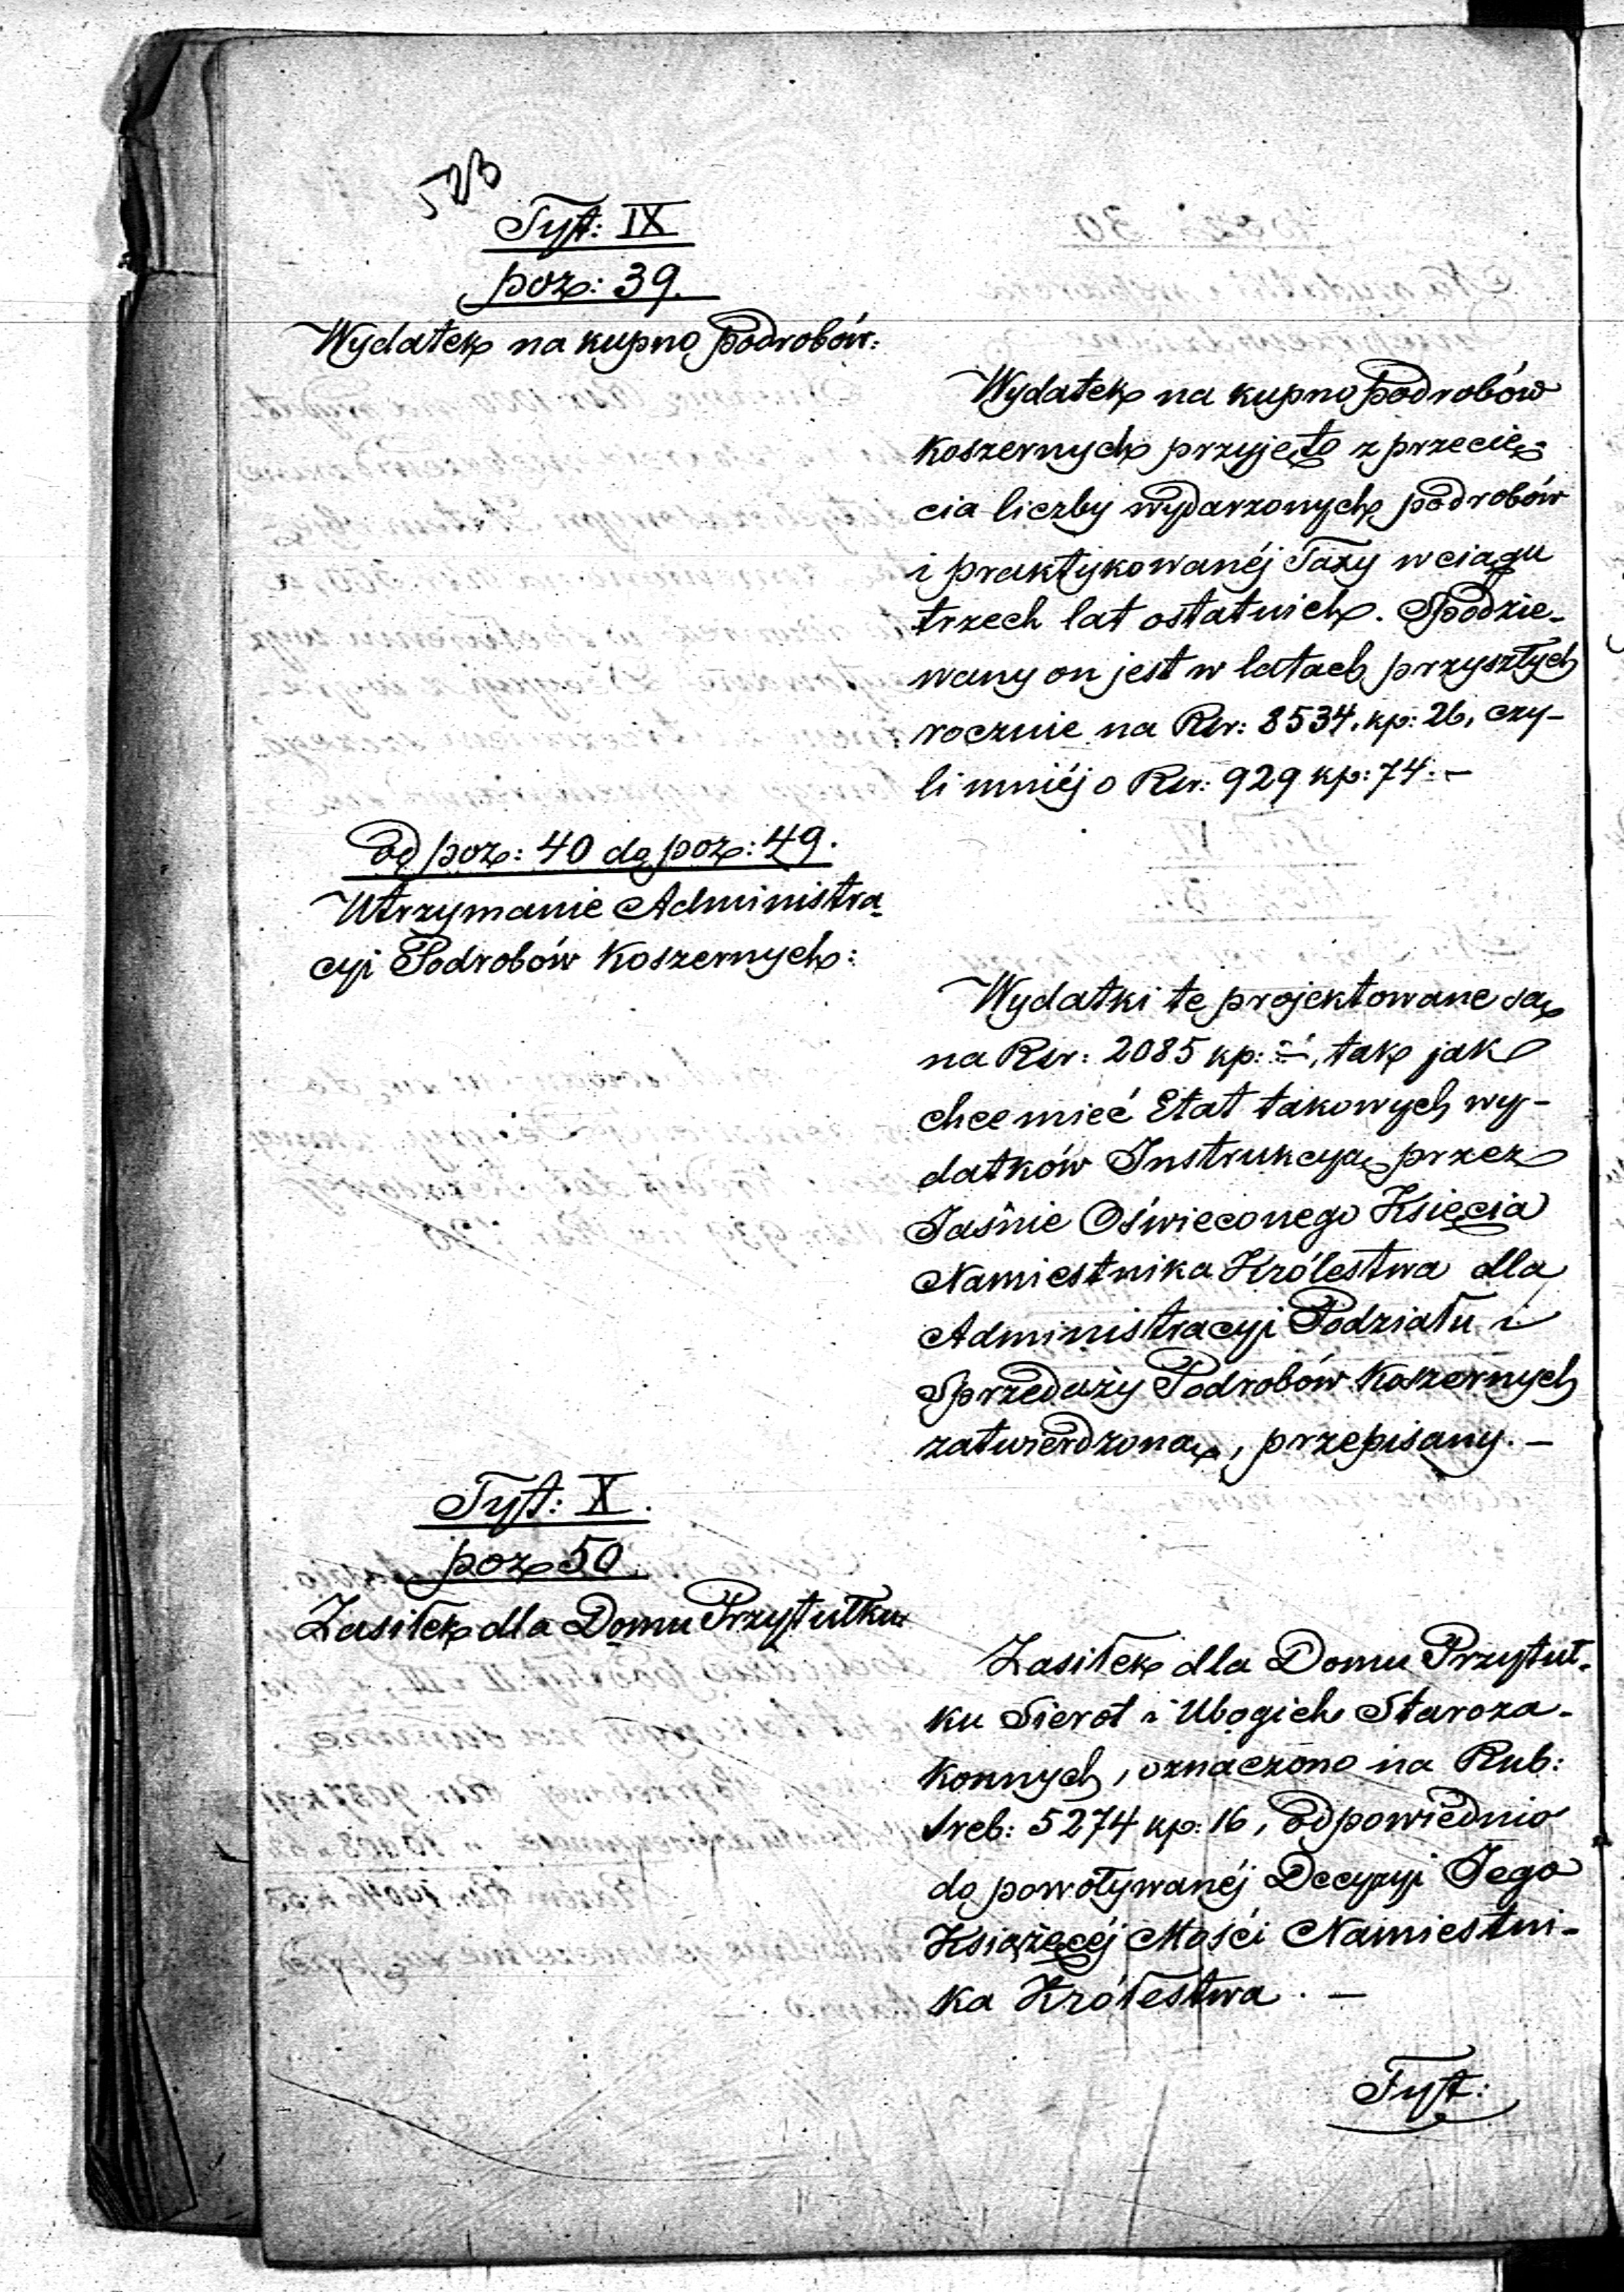 523
Tyt: IX
poz: 39.
Wydatek na kupno Podrobów:
Wydatek na kupno Podrobów
koszernych przyjęto z przecię-
cia liczby wydarzonych podrobów
i praktykowanéj Taxy w ciągu
trzech lat ostatnich. Spodzie-
wany on jest w latach przyszłych
rocznie na Rsr: 8534, kp: 26, czy-
li mniéj o Rsr: 929 kp: 74. –
od poz: 40 do poz: 49.
Utrzymanie Administra-
cyi Podrobów Koszernych:
Wydatki te projektowane są
na Rsr: 2085 kp: –, tak jak
chce mieć Etat takowych wy-
datków Instrukcyą przez
Jaśnie Oświeconego Księcia
Namiestnika Królestwa dla
Administracyi Podziału i
Sprzedaży Podrobów Koszernych
zatwierdzoną, przepisany. –
Tyt: X.
poz 50.
Zasiłek dla Domu Przytułku
Zasiłek dla Domu Przytuł-
ku Sierot i Ubogich Staroza-
konnych, oznaczono na Rub:
sreb: 5274 kp: 16, odpowiednio
do powoływanéj Decyzyi Jego
Książęcéj Mości Namiestni-
ka Królestwa. –
Tyt: